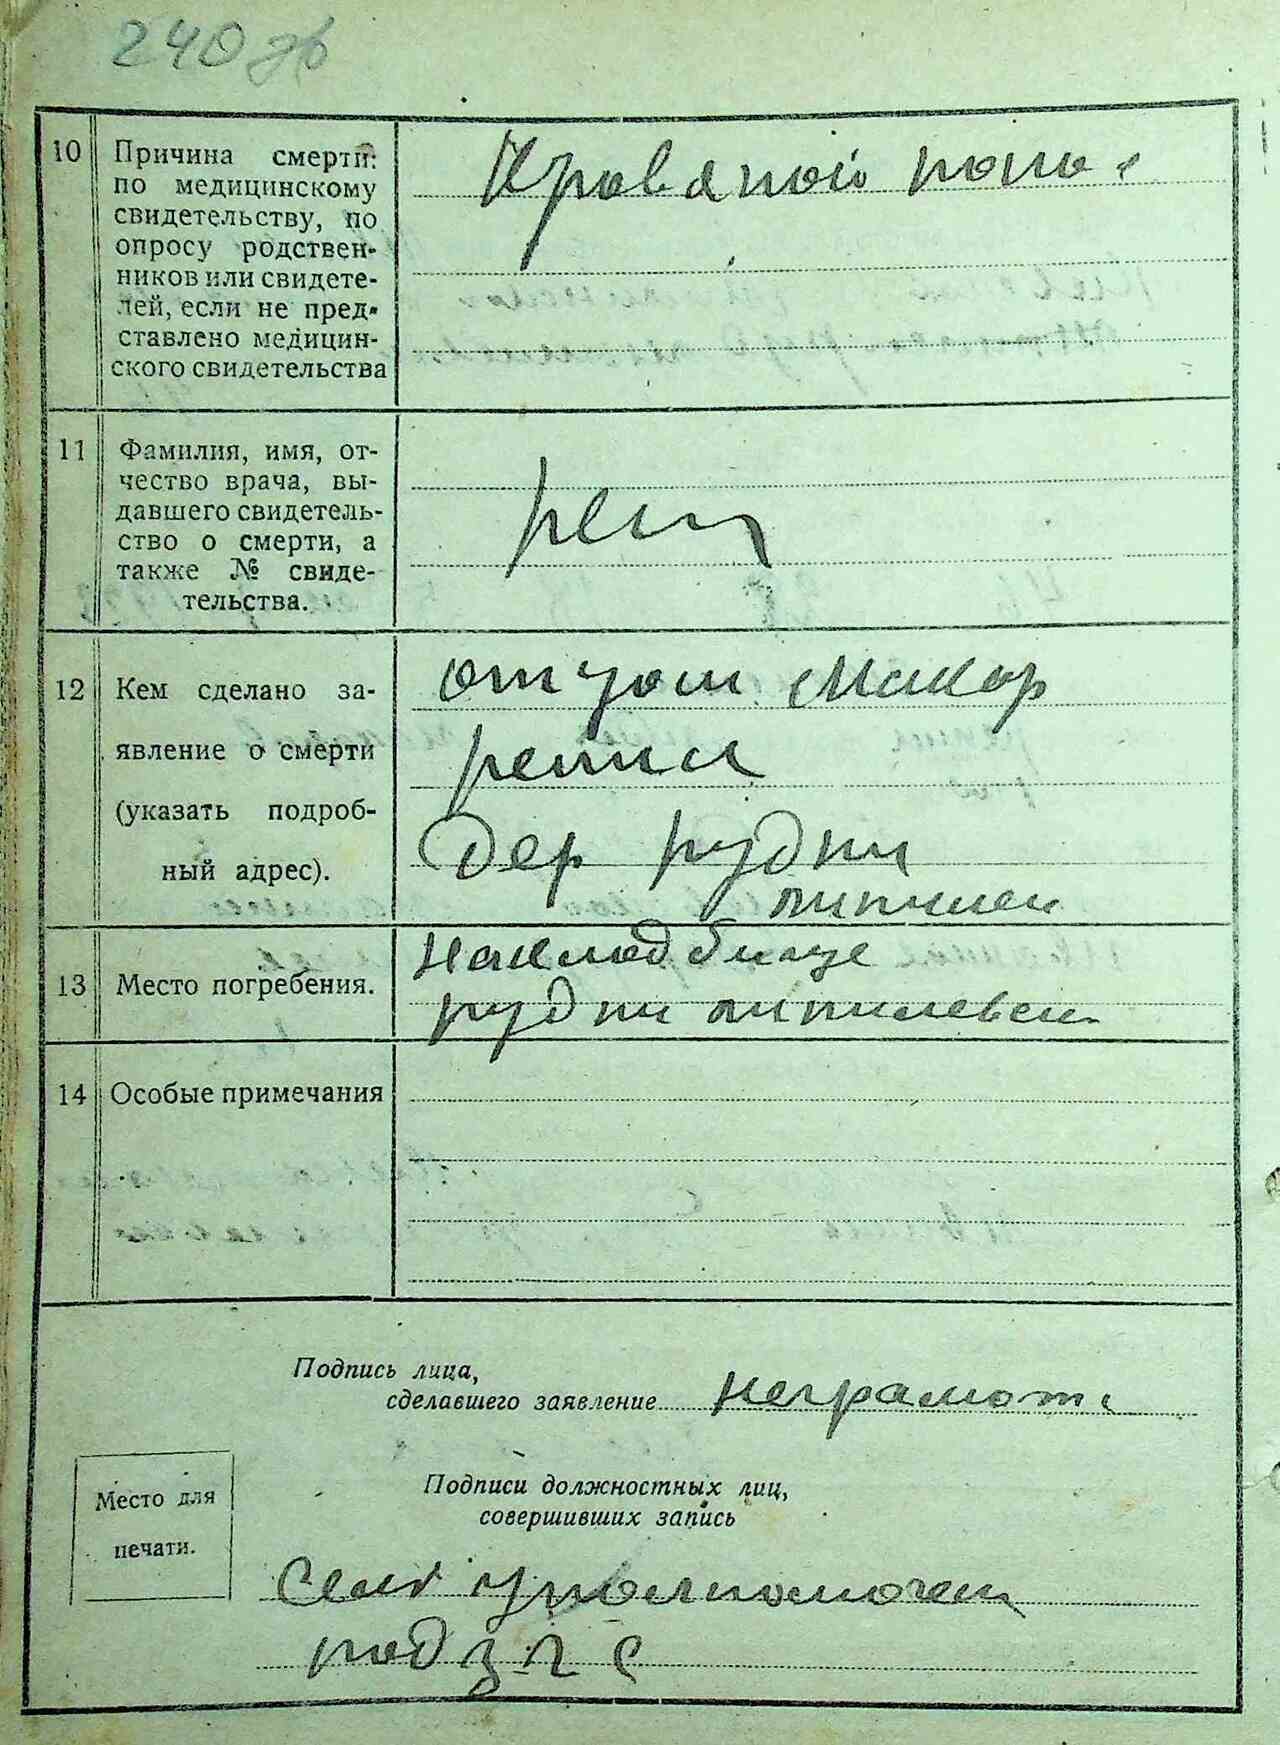 240 об
10 Причина смерти: Кровяной поно
по медицинскому
свидетельству, по
опросу родствен-
ников или свидете-
лей, если не пред-
ставлено медицин-
ского свидетельства
11 Фамилия, имя, от-
чество врача, вы-
давшего свидетель-
ство о смерти, а
также № свиде-
тельства.
12 Кем сделано за- Макар
явление о смерти
(указать подроб- Дер рудни
ный адрес).
13 Место погребения. На кладбище
рудни
14 Особые примечания
Подпись лица,
сделавшего заявление неграмот
Место для
печати.
Подписи должностных лиц,
совершивших запись
Сель уполномочен